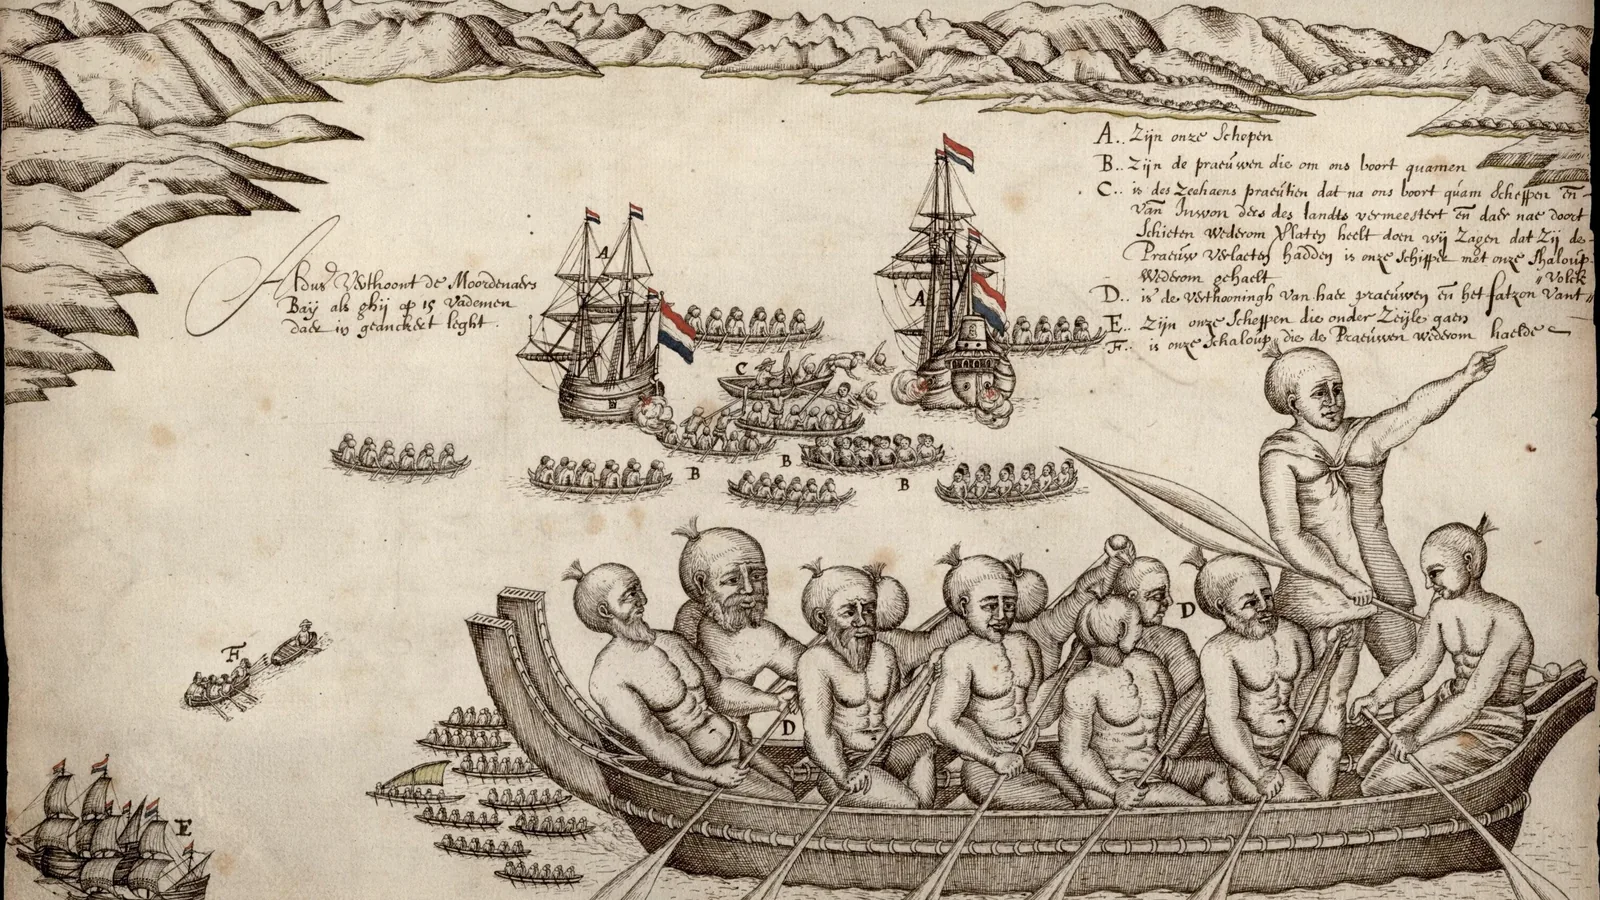 Aldus Verthoont de Moordenaers
Baij als ghij op 15 Vademen
daer in geanckert leght.
A.. Zijn onze Schepen
B.. Zijn de praeuwen die om ons boort quamen
C.. is des Zeehaens praeutien dat na ons boort quam Scheppen en
van Inwon ders des landts vermeestert en daer nae doort
Schieten wederom Verlaten heelt doen wij Zagen dat Zij de
Praeuw Verlaeten hadden is onze Schipper met onze Shaloup
Wederom gehaelt
D.. is de Verthooningh van haer praeuwen en het fatzon vant Volck
E.. Zijn onze Scheppen die onder Zeijle gaen
F.. is onze Schaloup die de Praeuwen wederom haelde
A
A
C
B
B
B
B
D
D
F
E